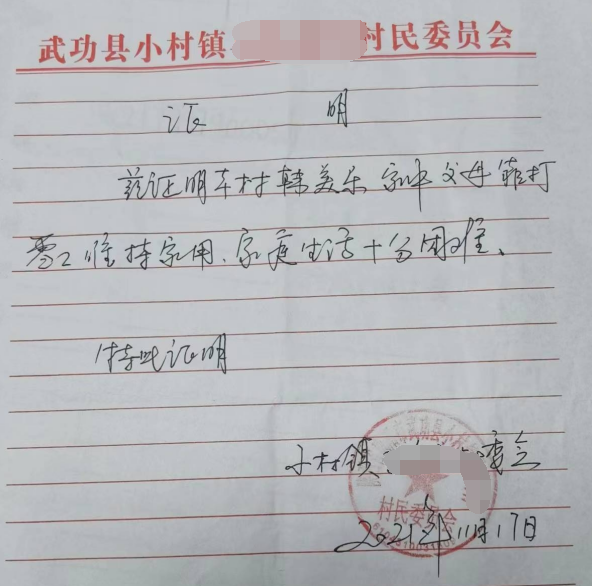 武功县小村镇 村民委员会
证 明
兹证明本村韩美乐家中父母靠打
零工维持家用、家庭生活十分困难、
特此证明
小村镇 委会
村民委员会
2021年11月17日